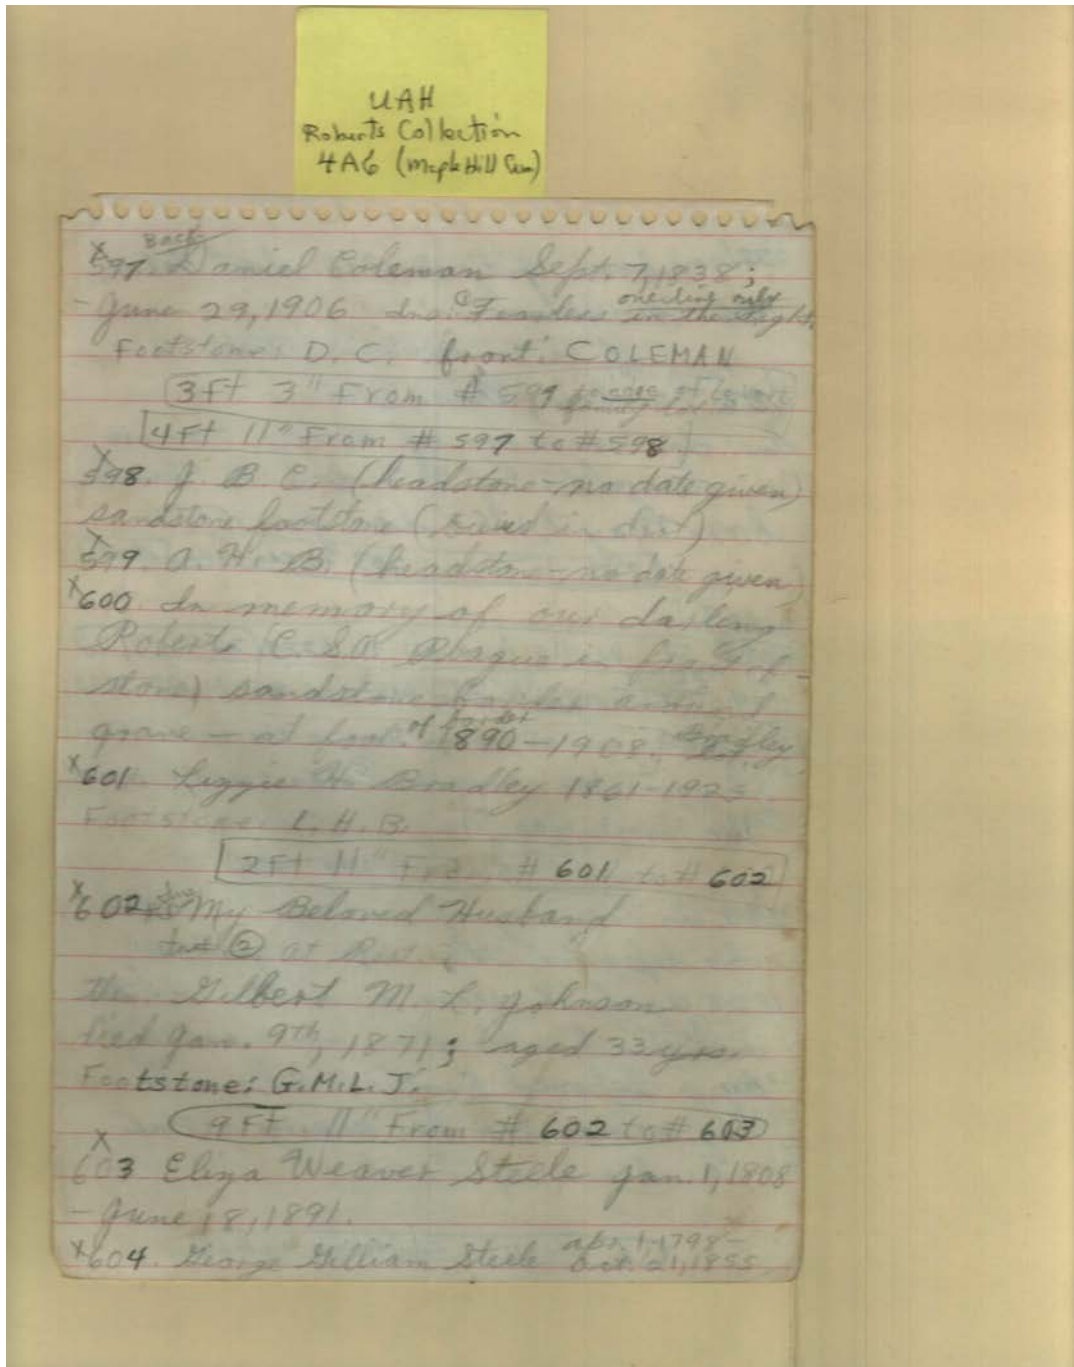 UAH
Roberts Collection
4A6 (Maple Hill Cem)
Back
597. Daniel Coleman Sept. 7, 1838;
- June 29, 1906 Ins: one line only
in the
Footstone: D. C. front: COLEMAN
3 Ft 3" From # 597 to edge of
family
4 Ft 11" From # 597 to # 598
598. J. B. C. (headstone - no date given)
sandstone footstone (buried in dirt)
599. A. H. B. (headstone - no date given)
600. In memory of our darling
Roberts C.S.A. in front of
stone) sandstone border around
grave - at foot of border 1890-1908. Bradley
601. Lizzie H. Bradley 1861-192
Footstone: L. H. B.
2 Ft 11" From # 601 to # 602
602. My Beloved Husband
② at Rest
Gilbert M. L. Johnson
died Jan. 9th, 1871; aged 33 yrs.
Footstone: G.M.L.J.
9 Ft 11" From # 602 to # 603
603 Eliza Weaver Steele Jan. 1, 1808
- June 18, 1891.
604. George Gilliam Steele Apr. 1, 1798 -
Oct. 21, 1855